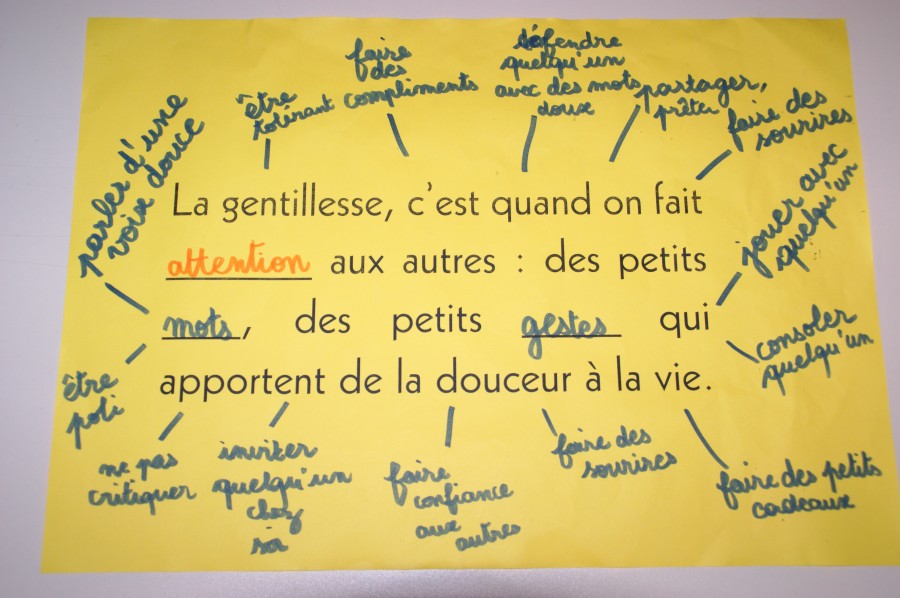 être
tolérant
faire
des
compliments
défendre
quelqu'un
avec des mots
doux
partager,
prêter
faire des
sourires
parler d'une
voix douce
La gentillesse, c'est quand on fait
attention aux autres : des petits
mots, des petits gestes qui
apportent de la douceur à la vie.
jouer avec
quelqu'un
consoler
quelqu'un
être
poli
ne pas
critiquer
inviter
quelqu'un
chez
soi
faire
confiance
aux
autres
faire des
sourires
faire des petits
cadeaux